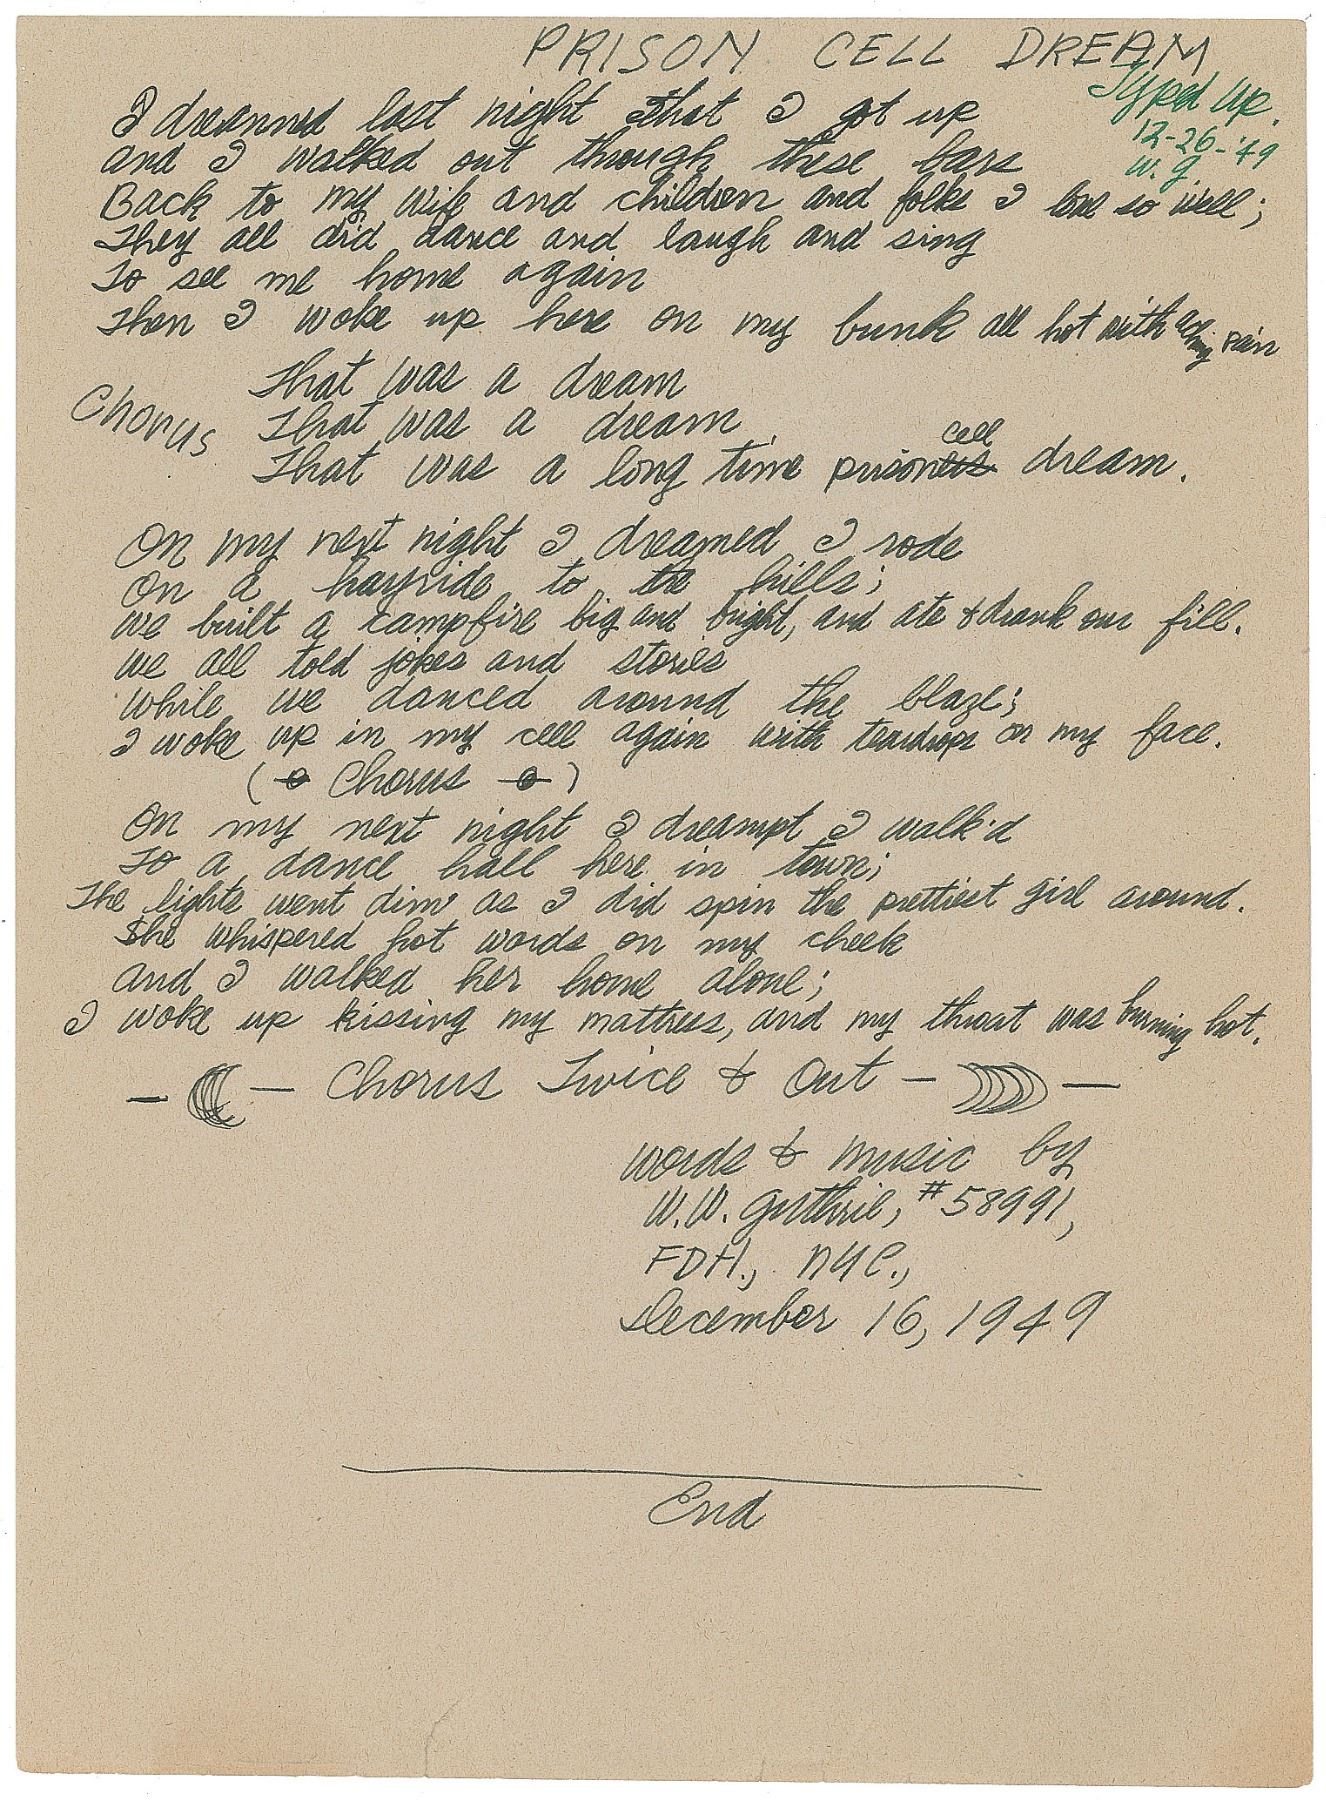 PRISON CELL DREAM
Typed Up.
12-26-'49
W.G.
I dreamed last night that I got up
and I walked out through these bars
Back to my wife and children and folks I love so well;
They all did dance and laugh and sing
To see me home again
Then I woke up here on my bunk all hot with aching pain
Chorus
That was a dream
That was a dream
That was a long time prison cell dream.
On my next night I dreamed I rode
On a hayride to the hills;
We built a campfire big and bright, and ate & drank our fill.
We all told jokes and stories
While we danced around the blaze;
I woke up in my cell again with teardrops on my face.
(Chorus)
On my next night I dreampt I walk'd
To a dance hall here in town;
The lights went dim as I did spin the prettiest girl around.
She whispered hot words on my cheek
and I walked her home alone;
I woke up kissing my mattress, and my throat was burning hot.
— Chorus Twice & Out —
Words & music by
W.W. Guthrie, #58991,
FDH., NYC.,
December 16, 1949
End